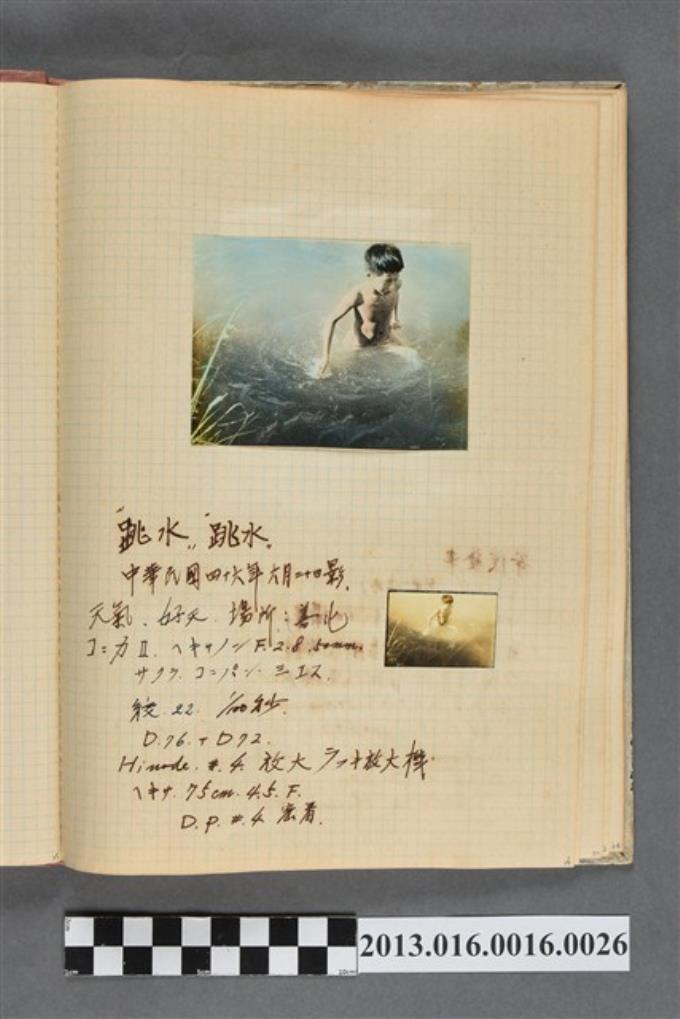 "跳水" 跳水.
中華民國四十六年六月二十日影.
天氣. 好天. 場所: 善化
コニカ II. ヘキサノン F.2.8. 50mm.
サクラ. コニパン. ミエス.
絞. 22. 1/100 秒.
D.76. + D72.
Hinode. #.4. 放大 ラッキ放大機.
ヘキサ. 75cm. 4.5. F.
D.P. #.4. 密着.
2013.016.0016.0026